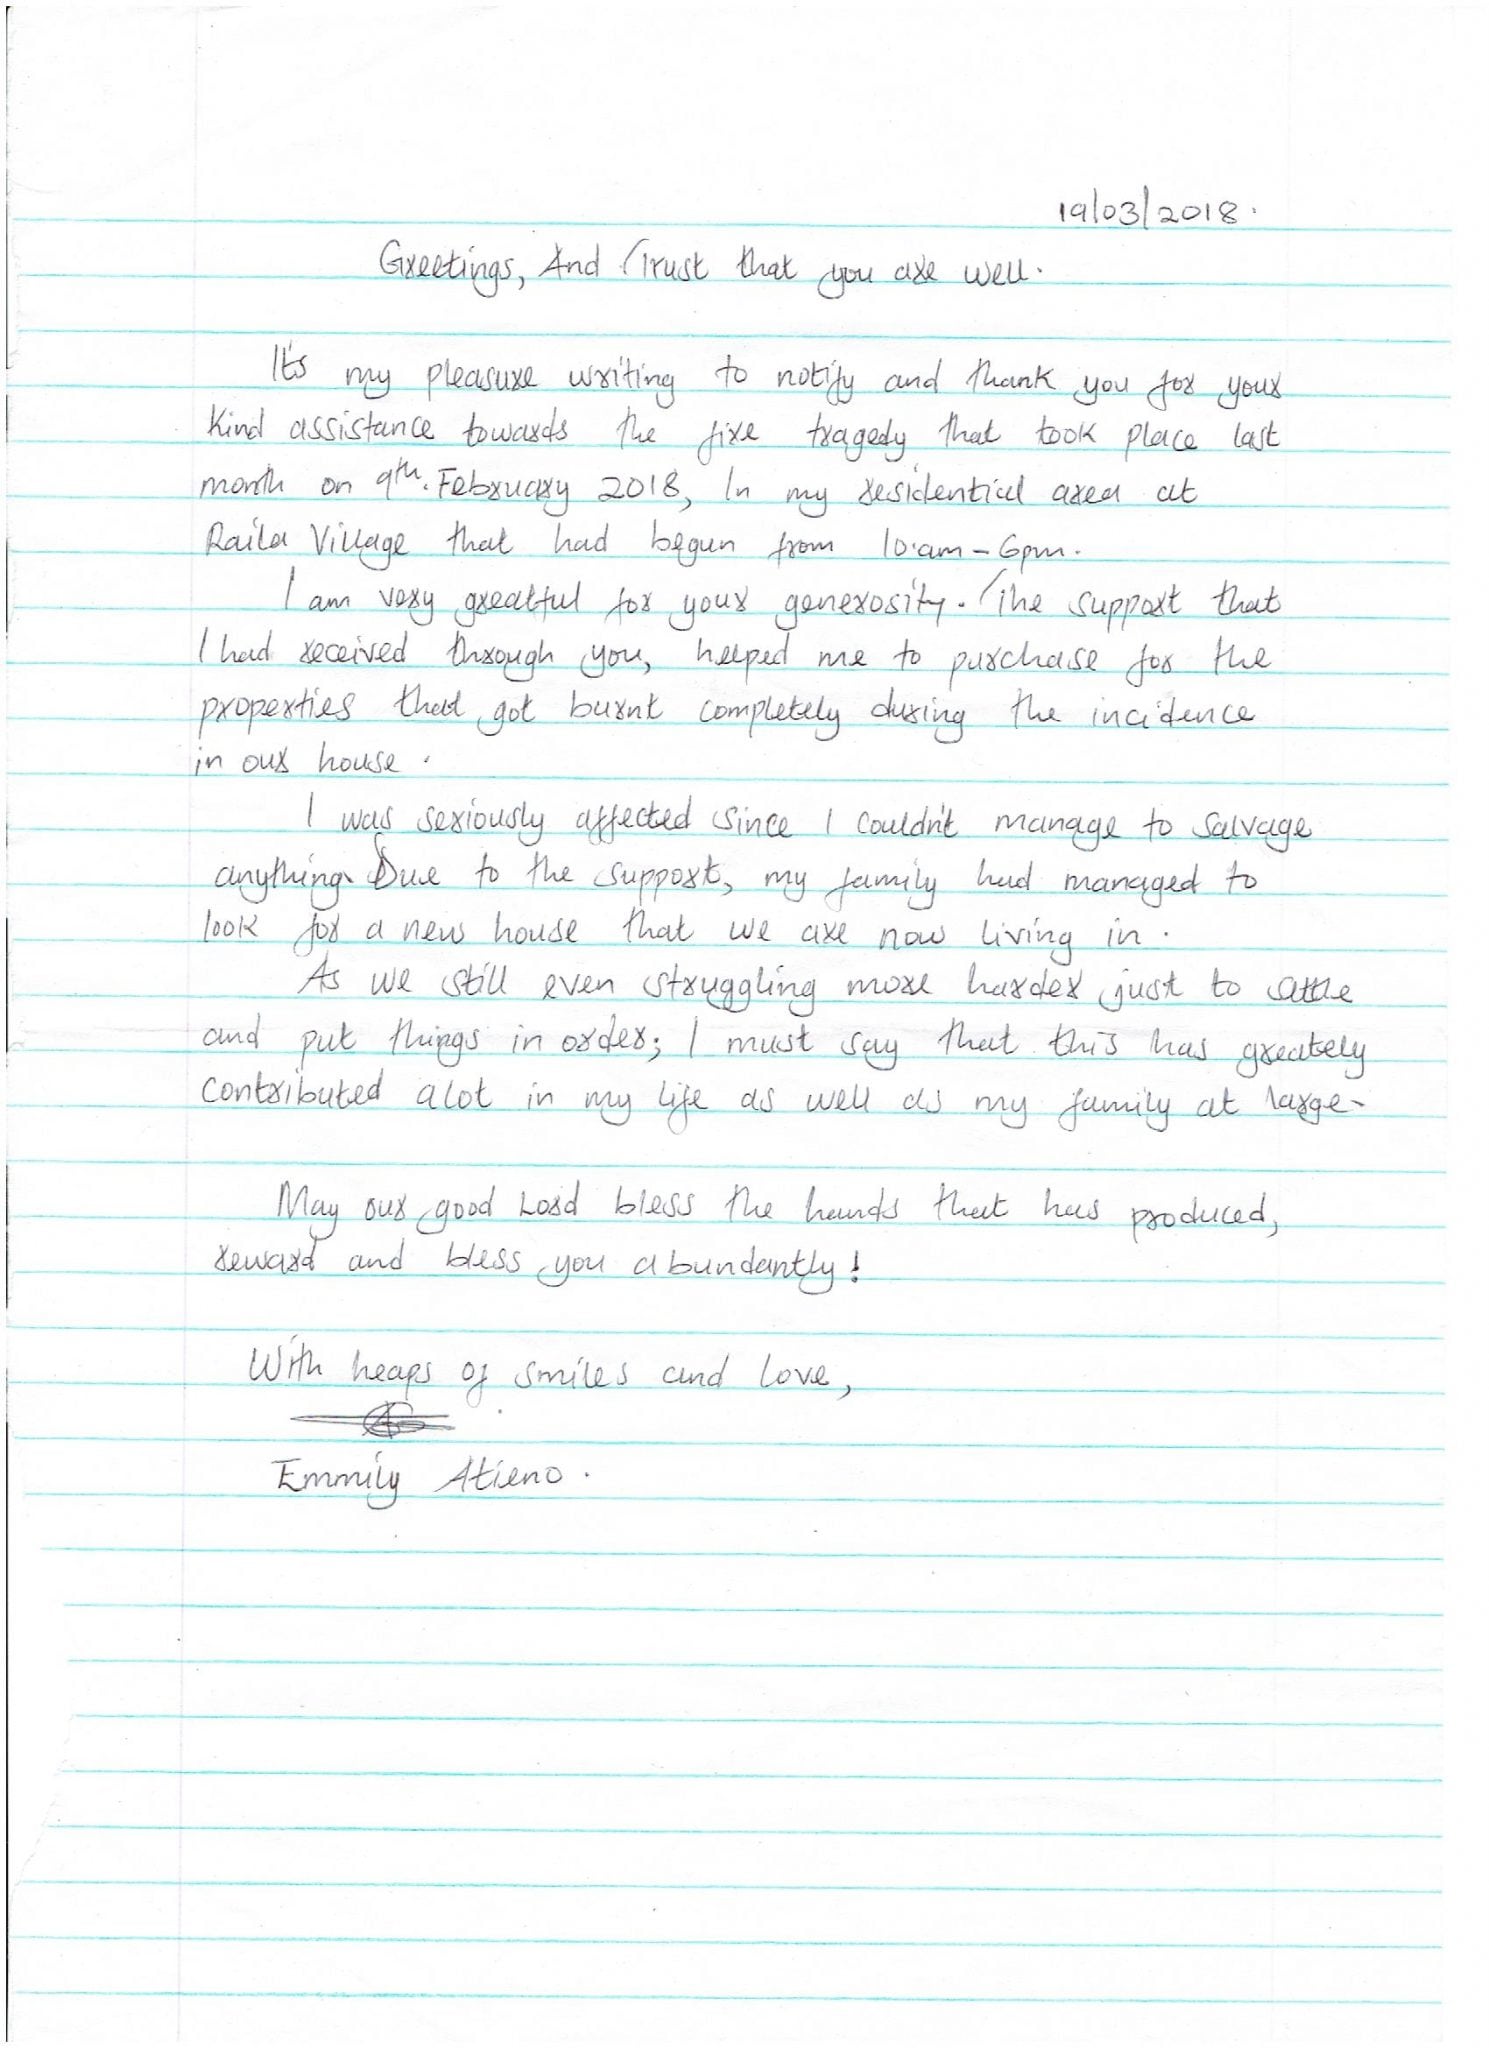 19/03/2018.
Greetings, And Trust that you are well.
It's my pleasure writing to notify and thank you for your
kind assistance towards the fire tragedy that took place last
month on 9th. February 2018, In my residential area at
Raila Village that had begun from 10.am - 6pm.
I am very greatful for your generosity. The support that
I had received through you, helped me to purchase for the
properties that got burnt completely during the incidence
in our house.
I was seriously affected since I couldn't manage to salvage
anything. Due to the support, my family had managed to
look for a new house that we are now living in.
As we still even struggling more harder just to settle
and put things in order; I must say that this has greately
contributed alot in my life as well as my family at large.
May our good Lord bless the hands that has produced,
reward and bless you abundantly!
With heaps of smiles and love,
Emmily Atieno.